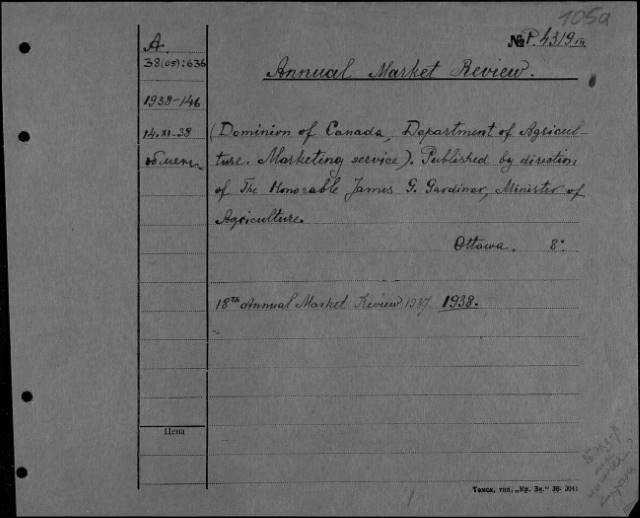 105a
A.
38(05):636
№ P. 4319
Annual Market Review.
1938-146
14.XI.38
обмен
(Dominion of Canada, Department of Agricul-
ture. Marketing service). Published by direction
of The Honorable James G. Gardiner, Minister of
Agriculture.
Ottawa. 8°
18th Annual Market Review 1937 1938.
Цена
Томск, тип. „Кр. Зн." 38. 3041